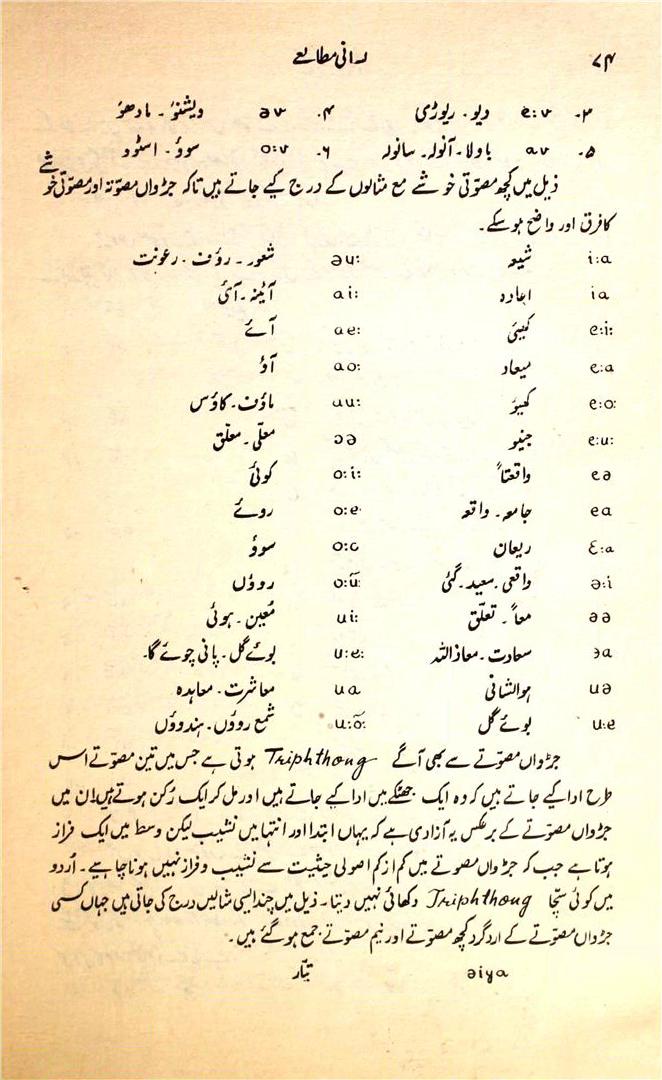 ۷۴ لسانی مطالعے
۳۔ e:v دیو۔ ریوڑی ۴۔ əv ویشنوؔ۔ مادھوؔ
۵۔ av باولا۔ آنولہ۔ سانولہ ۶۔ o:v سووُ۔ اسٹوو
ذیل میں کچھ مصوّتی خوشے مع مثالوں کے درج کیے جاتے ہیں تاکہ جڑواں مصوّتہ اور مصوّتی خوشے
کا فرق اور واضح ہو سکے۔
i:a شیعہ əu: شعور۔ رؤف۔ رعونت
ia اعادہ ai: آئینہ۔ آئی
e:i: کھیئی ae: آئے
e:a میعاد ao: آؤ
e:o: کھیؤ au: ماؤف۔ کاؤس
e:u: جنیو əə معلّی۔ معلّق
eə واقعتاً o:i: کوئی
ea جامعہ۔ واقعہ o:e روئے
ɛ:a ریعان o:o سوؤ
ə:i واقعی۔ سعید۔ گئی o:ũ: روؤں
əə معاً۔ تعلّق ui: مُعین۔ ہوئی
əa سعادت۔ معاذاللہ u:e: بوئے گل۔ پانی چوئے گا۔
uə ہوالشافی ua معاشرت۔ معاہدہ
u:e بوئے گل u:õ: شمع روؤں۔ ہندوؤں
جڑواں مصوّتے سے بھی آگے Triphthong ہوتی ہے جس میں تین مصوّتے اس
طرح ادا کیے جاتے ہیں کہ وہ ایک جھٹکے میں ادا کیے جاتے ہیں اور مل کر ایک رُکن ہوتے ہیں۔ اِن میں
جڑواں مصوّتے کے برعکس یہ آزادی ہے کہ یہاں ابتدا اور انتہا میں نشیب لیکن وسط میں ایک فراز
ہوتا ہے جب کہ جڑواں مصوتے میں کم از کم اصولی حیثیت سے نشیب و فراز نہیں ہونا چاہیے۔ اُردو
میں کوئی سچّا Triphthong دکھائی نہیں دیتا۔ ذیل میں چند ایسی مثالیں درج کی جاتی ہیں جہاں کسی
جڑواں مصوّتے کے ارد گرد کچھ مصوّتے اور نیم مصوّتے جمع ہو گئے ہیں۔
əiya تیّار